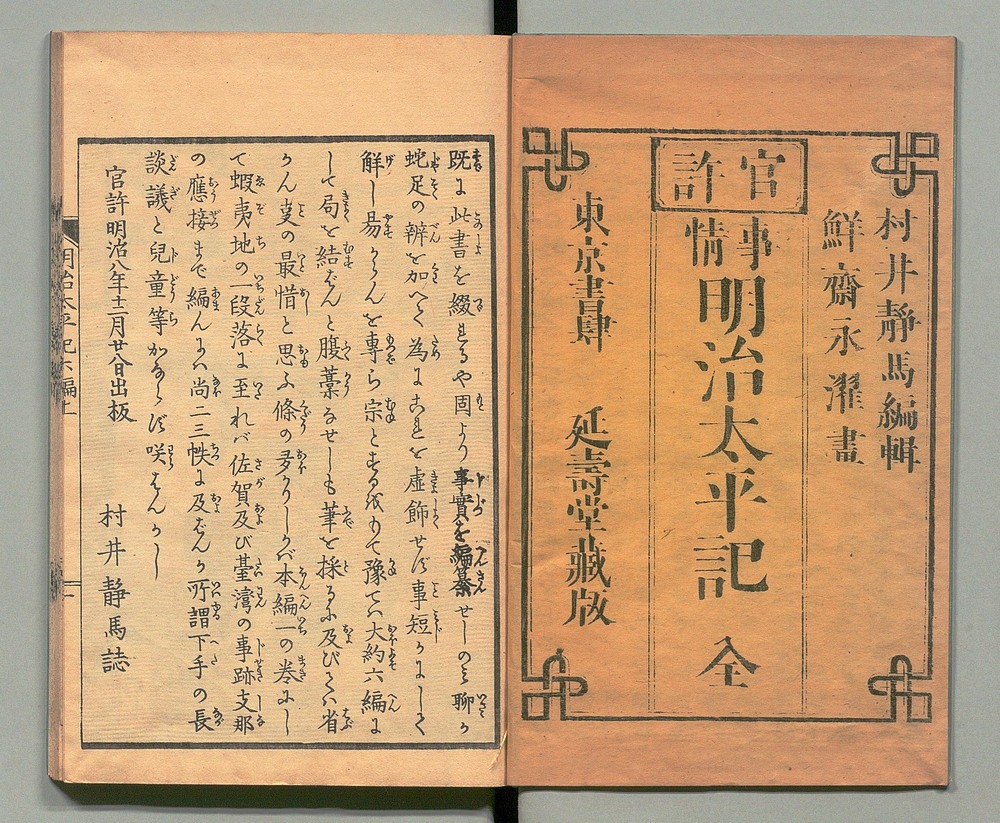 村井靜馬編輯
鮮齋永濯畫
官許
事情
明治太平記 全
東京書肆 延壽堂藏版
既に此書を綴るや固より事實を編纂せしのミ聊か
蛇足の辧を加へて為にことを虚飾せず事短かにしく
解し易からんを専ら宗とするをもて豫てハ大約六編に
して局を結ばんと腹藁なせしも筆を採るに及びてハ省
かん叓の最惜と思ふ條の多かりしかバ本編一の巻にし
て蝦夷地の一段落に至れバ佐賀及び臺灣の事跡支那
の應接まで編んにハ尚二三帙に及ばんか所謂下手の長
談議と兒童等かならず咲はんかし
官許明治八年十二月廿八日出板
村井靜馬誌
明治太平記六編上